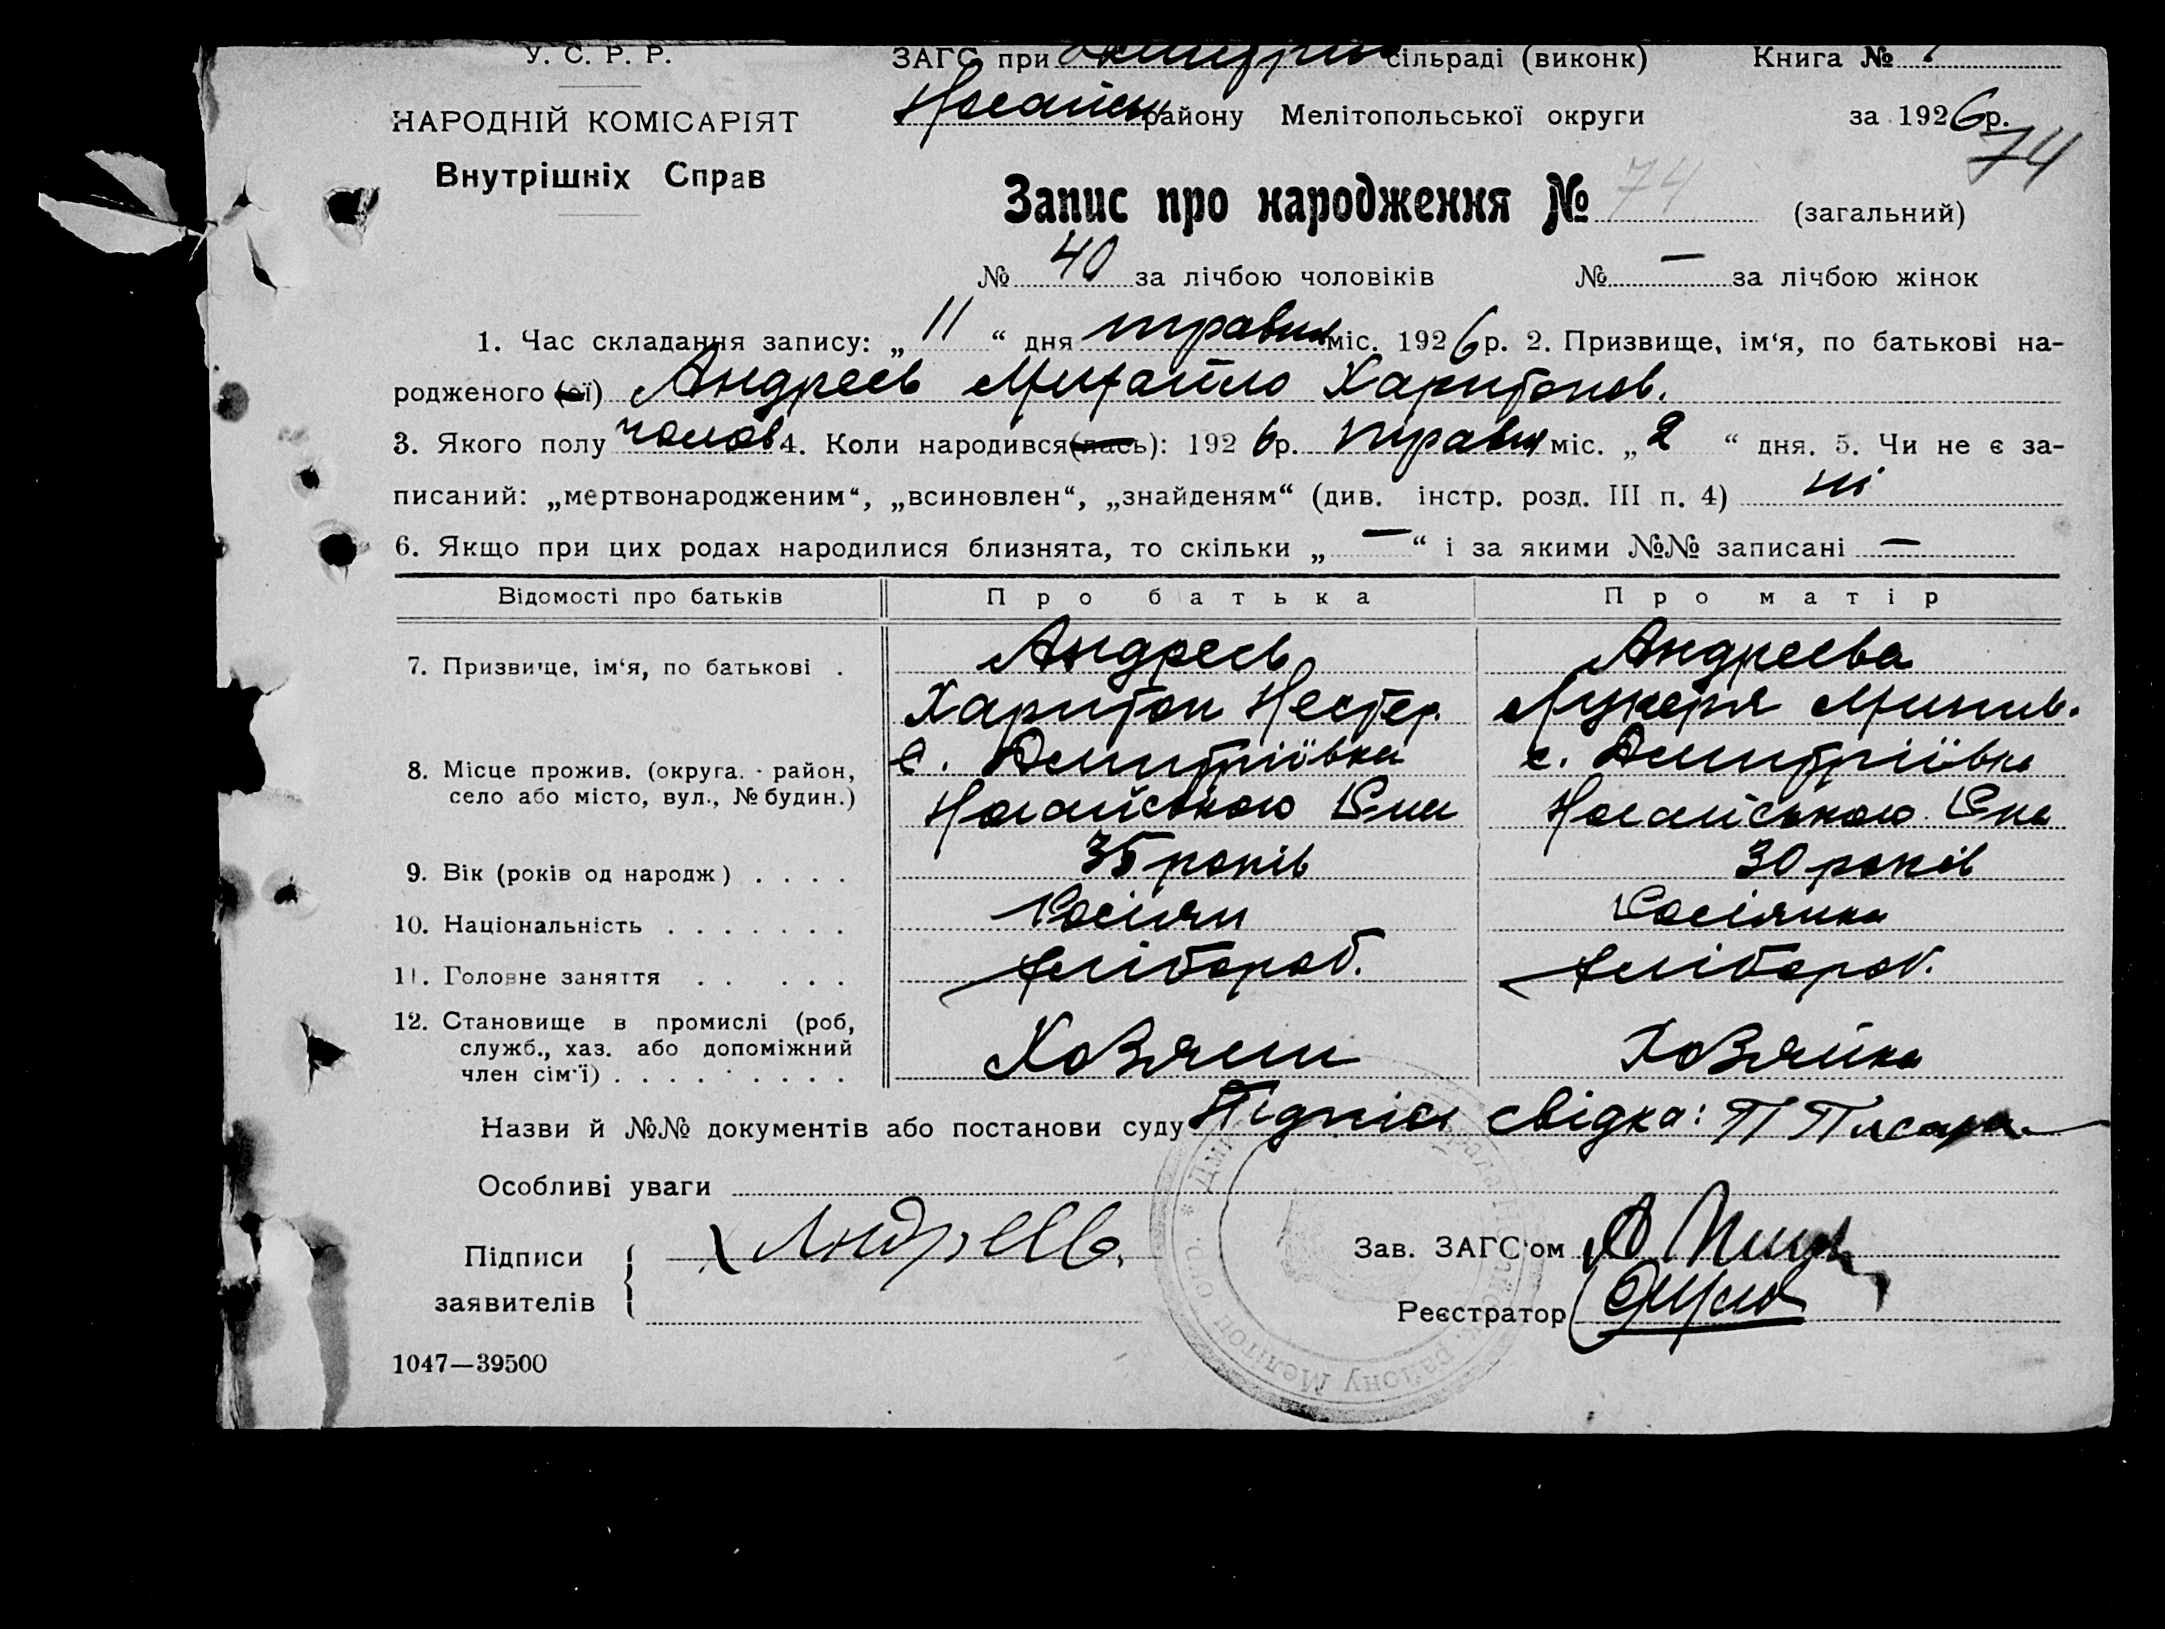 У. С. Р. Р. ЗАГС при сільраді (виконк) Книга №
НАРОДНІЙ КОМІСАРІЯТ Ногайськ району Мелітопольської округи за 1926 р.
74
Внутрішніх Справ
Запис про народження № 74 (загальний)
№ 40 за лічбою чоловіків № — за лічбою жінок
1. Час складання запису: „ 11 “ дня травня міс. 1926 р. 2. Призвище, ім‘я, по батькові на-
родженого (ої) Андреєв Михайло Харитонов.
3. Якого полу чолов 4. Коли народився(лась): 1926 р. травня міс. „ 2 “ дня. 5. Чи не є за-
писаний: „мертвонародженим“, „всиновлен“, „знайденям“ (див. інстр. розд. III п. 4) ні
6. Якщо при цих родах народилися близнята, то скільки „ — “ і за якими №№ записані —
Відомості про батьків Про батька Про матір
7. Призвище, ім‘я, по батькові . Андреєв Андреєва
Харитон Нестер. Лукерія
8. Місце прожив. (округа. район, с. Дмитріївка с. Дмитріївка
село або місто, вул., № будин.) Ногайського Р-на Ногайського Р-на
9. Вік (років од народж) . . . . 35 років 30 років
10. Національність . . . . . . . Росіян Росіянка
11. Головне заняття . . . . . Хлібороб. Хлібороб.
12. Становище в промислі (роб,
служб., хаз. або допоміжний
член сім‘ї) . . . . . . . . . Хозяин Хозяйка
Назви й №№ документів або постанови суду Підпис свідка: П Писар
Особливі уваги
Підписи Андреев Зав. ЗАГС‘ом
заявителів Реєстратор
1047—39500